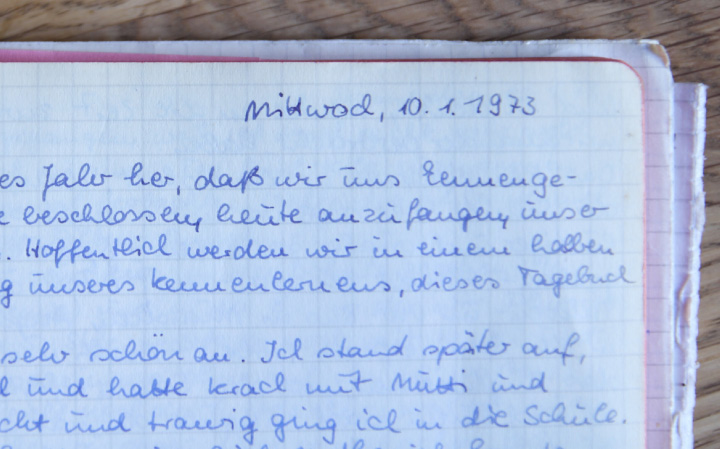 Mittwoch, 10.1.1973
es Jahr her, daß wir uns kennenge-
beschlossen, heute anzufangen, unser
. Hoffentlich werden wir in einem halben
g unseres kennenlernens, dieses Tagebuch
sehr schön an. Ich stand später auf,
und hatte krach mit Mutti und
cht und traurig ging ich in die Schule.